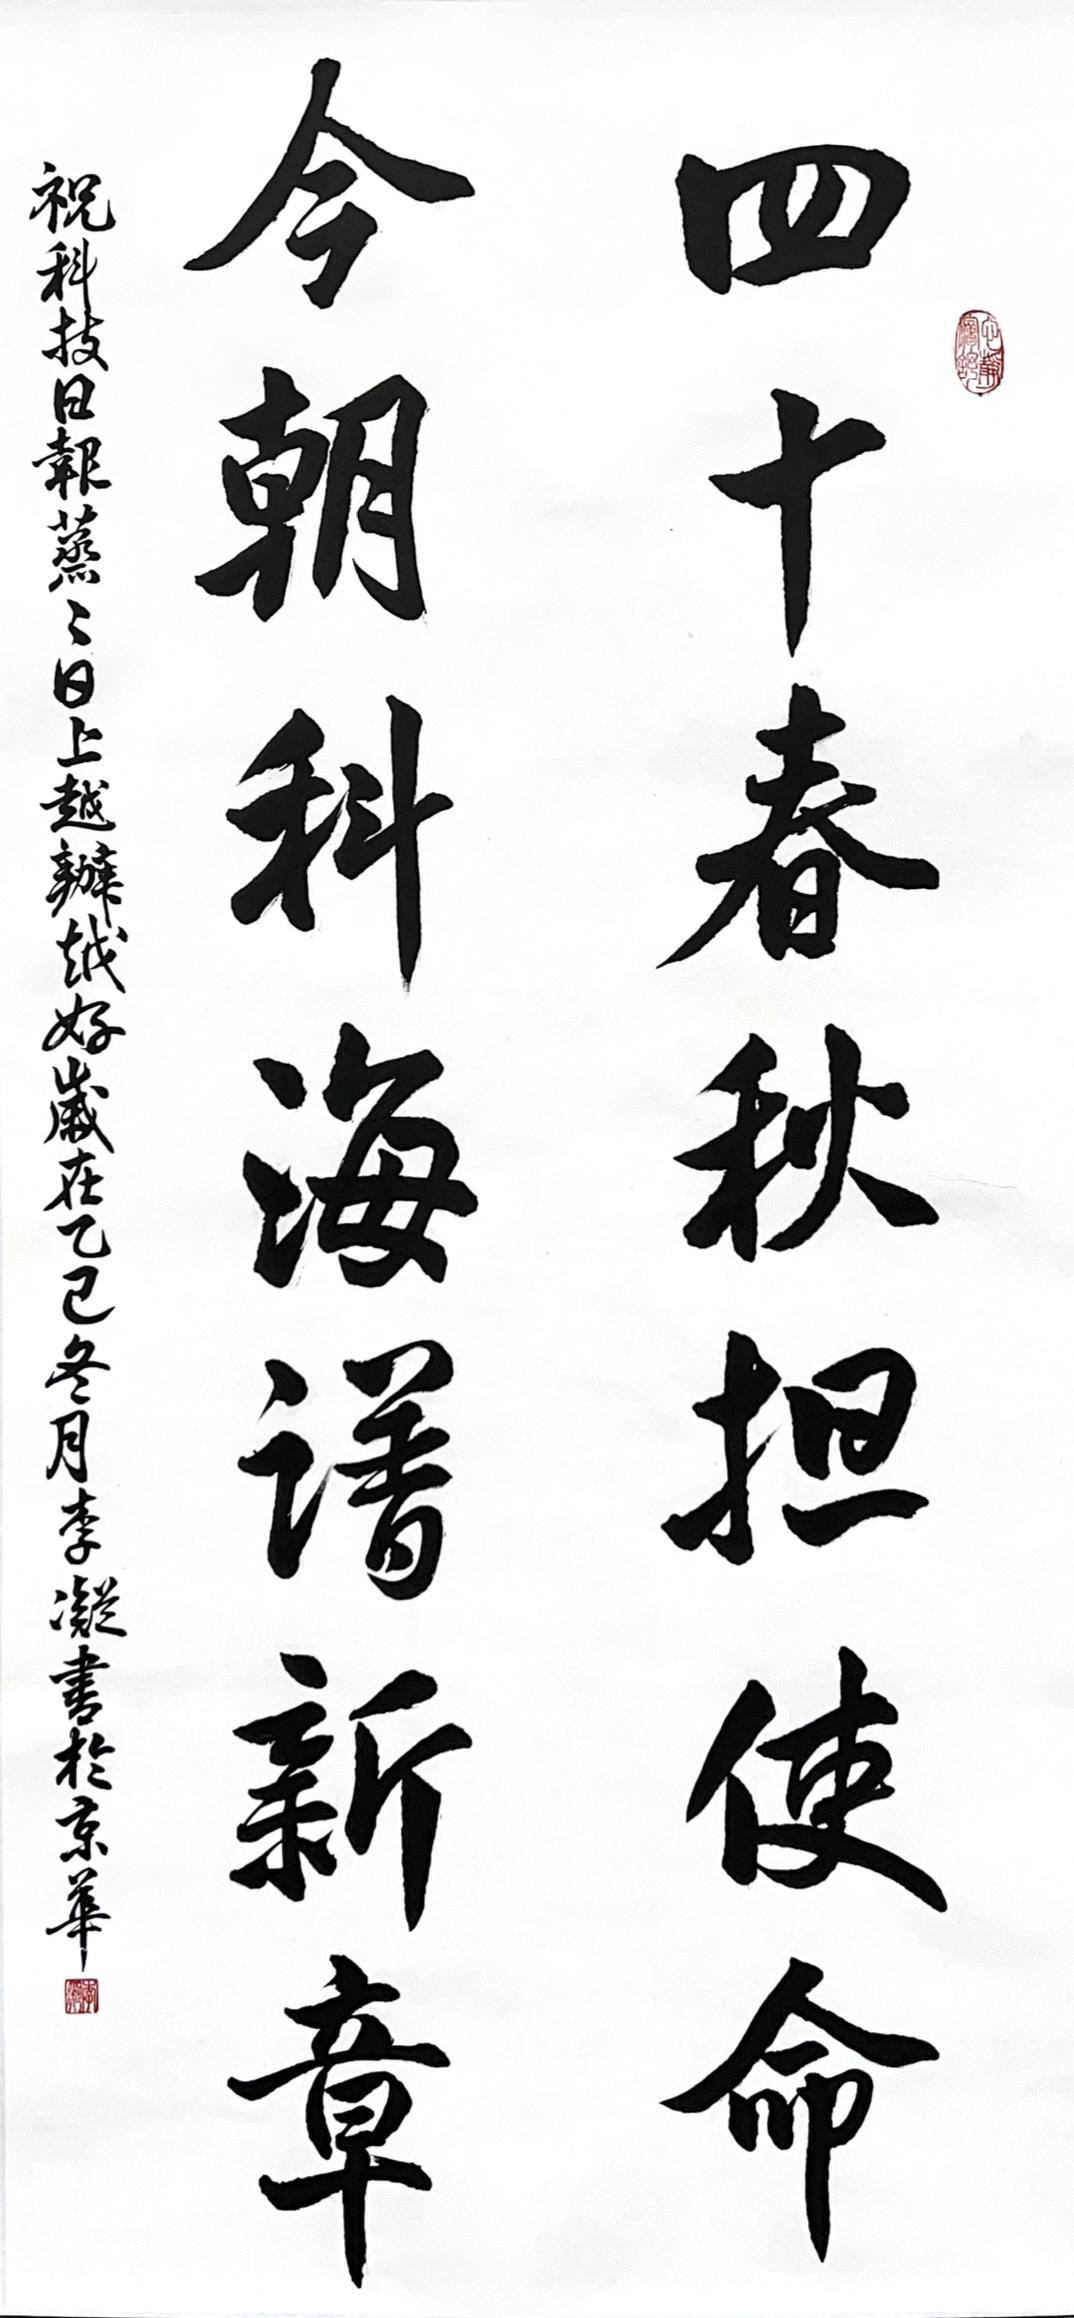 四十春秋担使命
今朝科海谱新章
祝科技日報蒸々日上越辦越好歲在乙巳冬月李凝書於京華